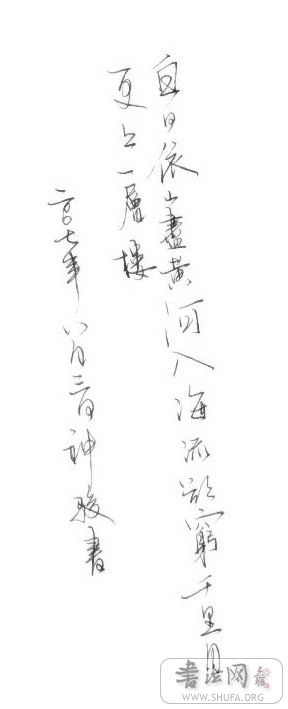 白日依山盡黄河入海流欲窮千里目
更上一層樓
二〇〇七年八月三日神駿書
書法网
WWW.SHUFA.ORG